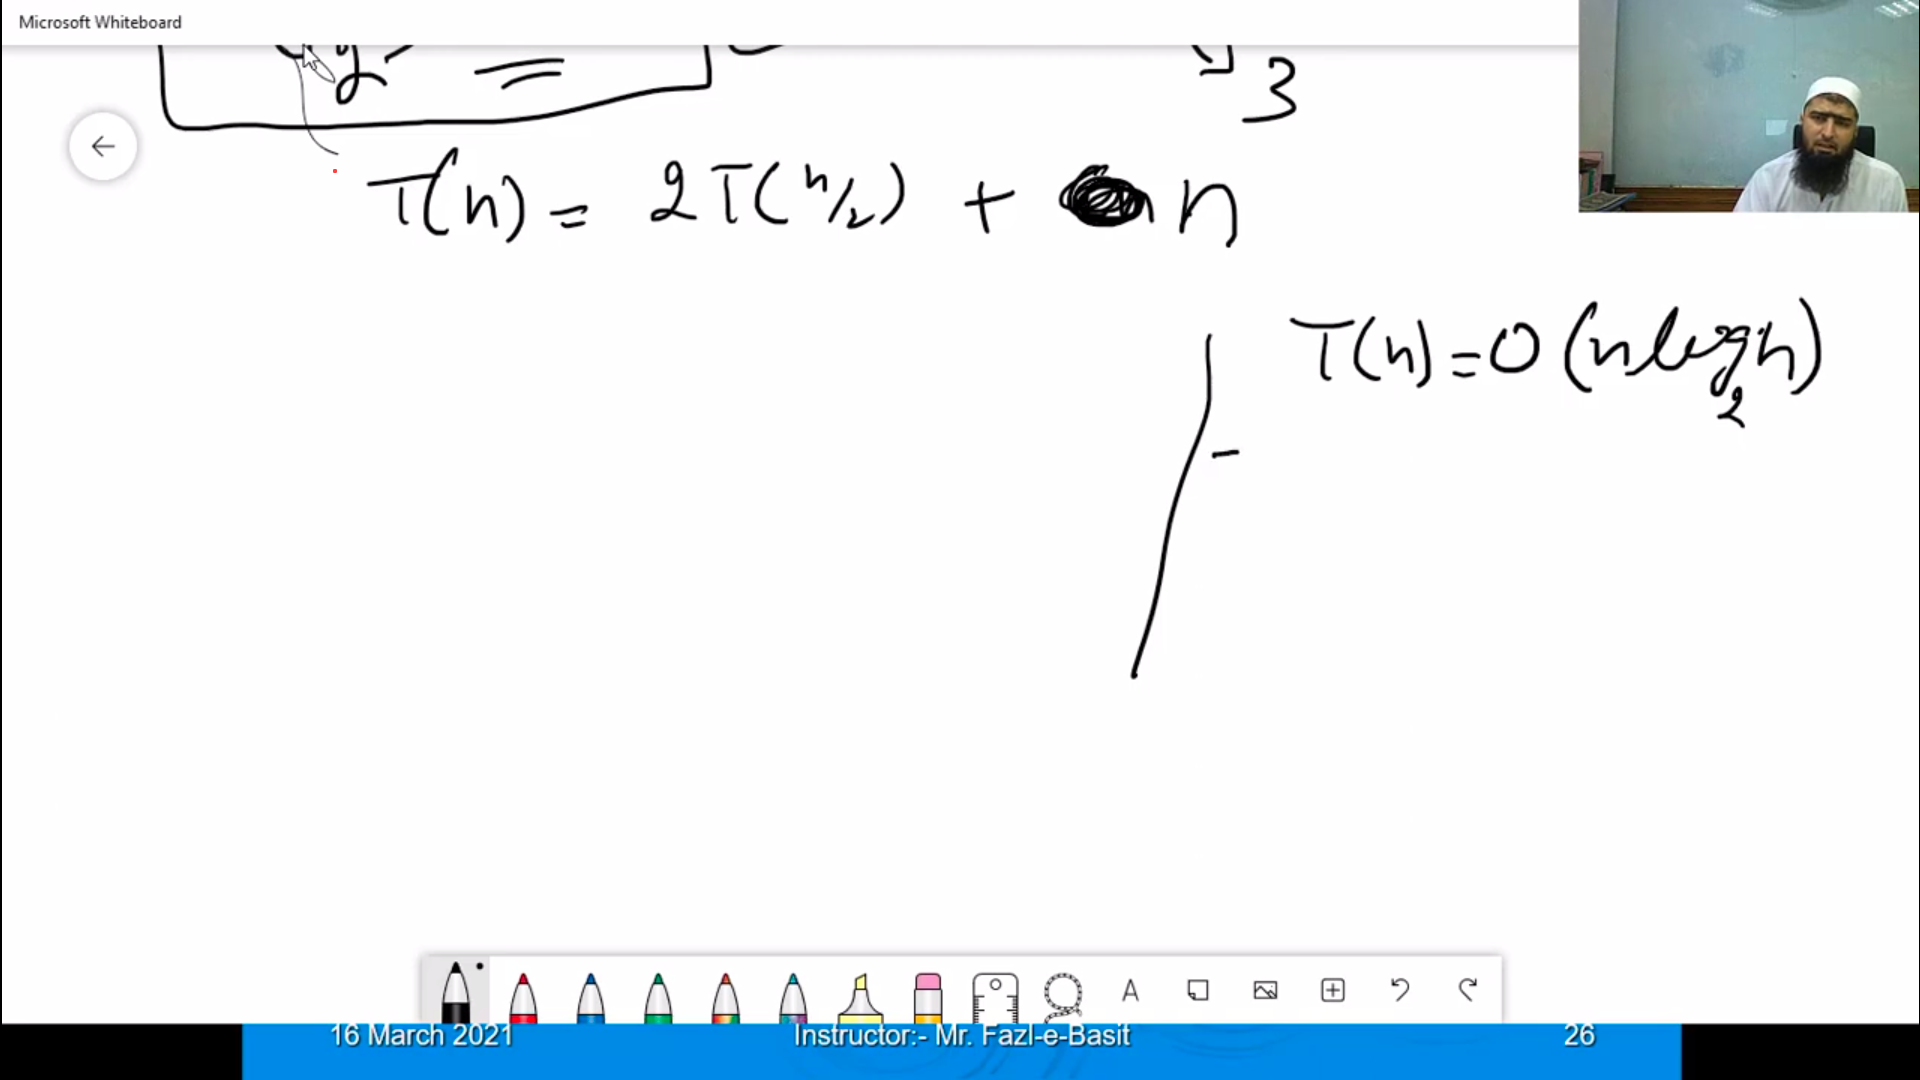 Microsoft Whiteboard
3
T(n) = 2T(n/2) + n
T(n) = O(n log₂ n)
16 March 2021
Instructor:- Mr. Fazl-e-Basit
26